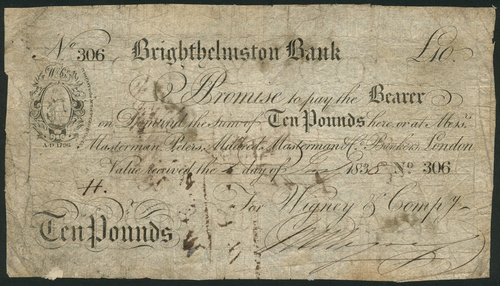 No 306 Brighthelmston Bank £10.
I Promise to pay the Bearer
on Demand the sum of Ten Pounds here, or at Messrs.
Masterman, Peters, Mildred, Masterman & Co. Bankers, London
A.D. 1796
Value received the day of 1835 No 306
For Wigney & Compy
Ten Pounds